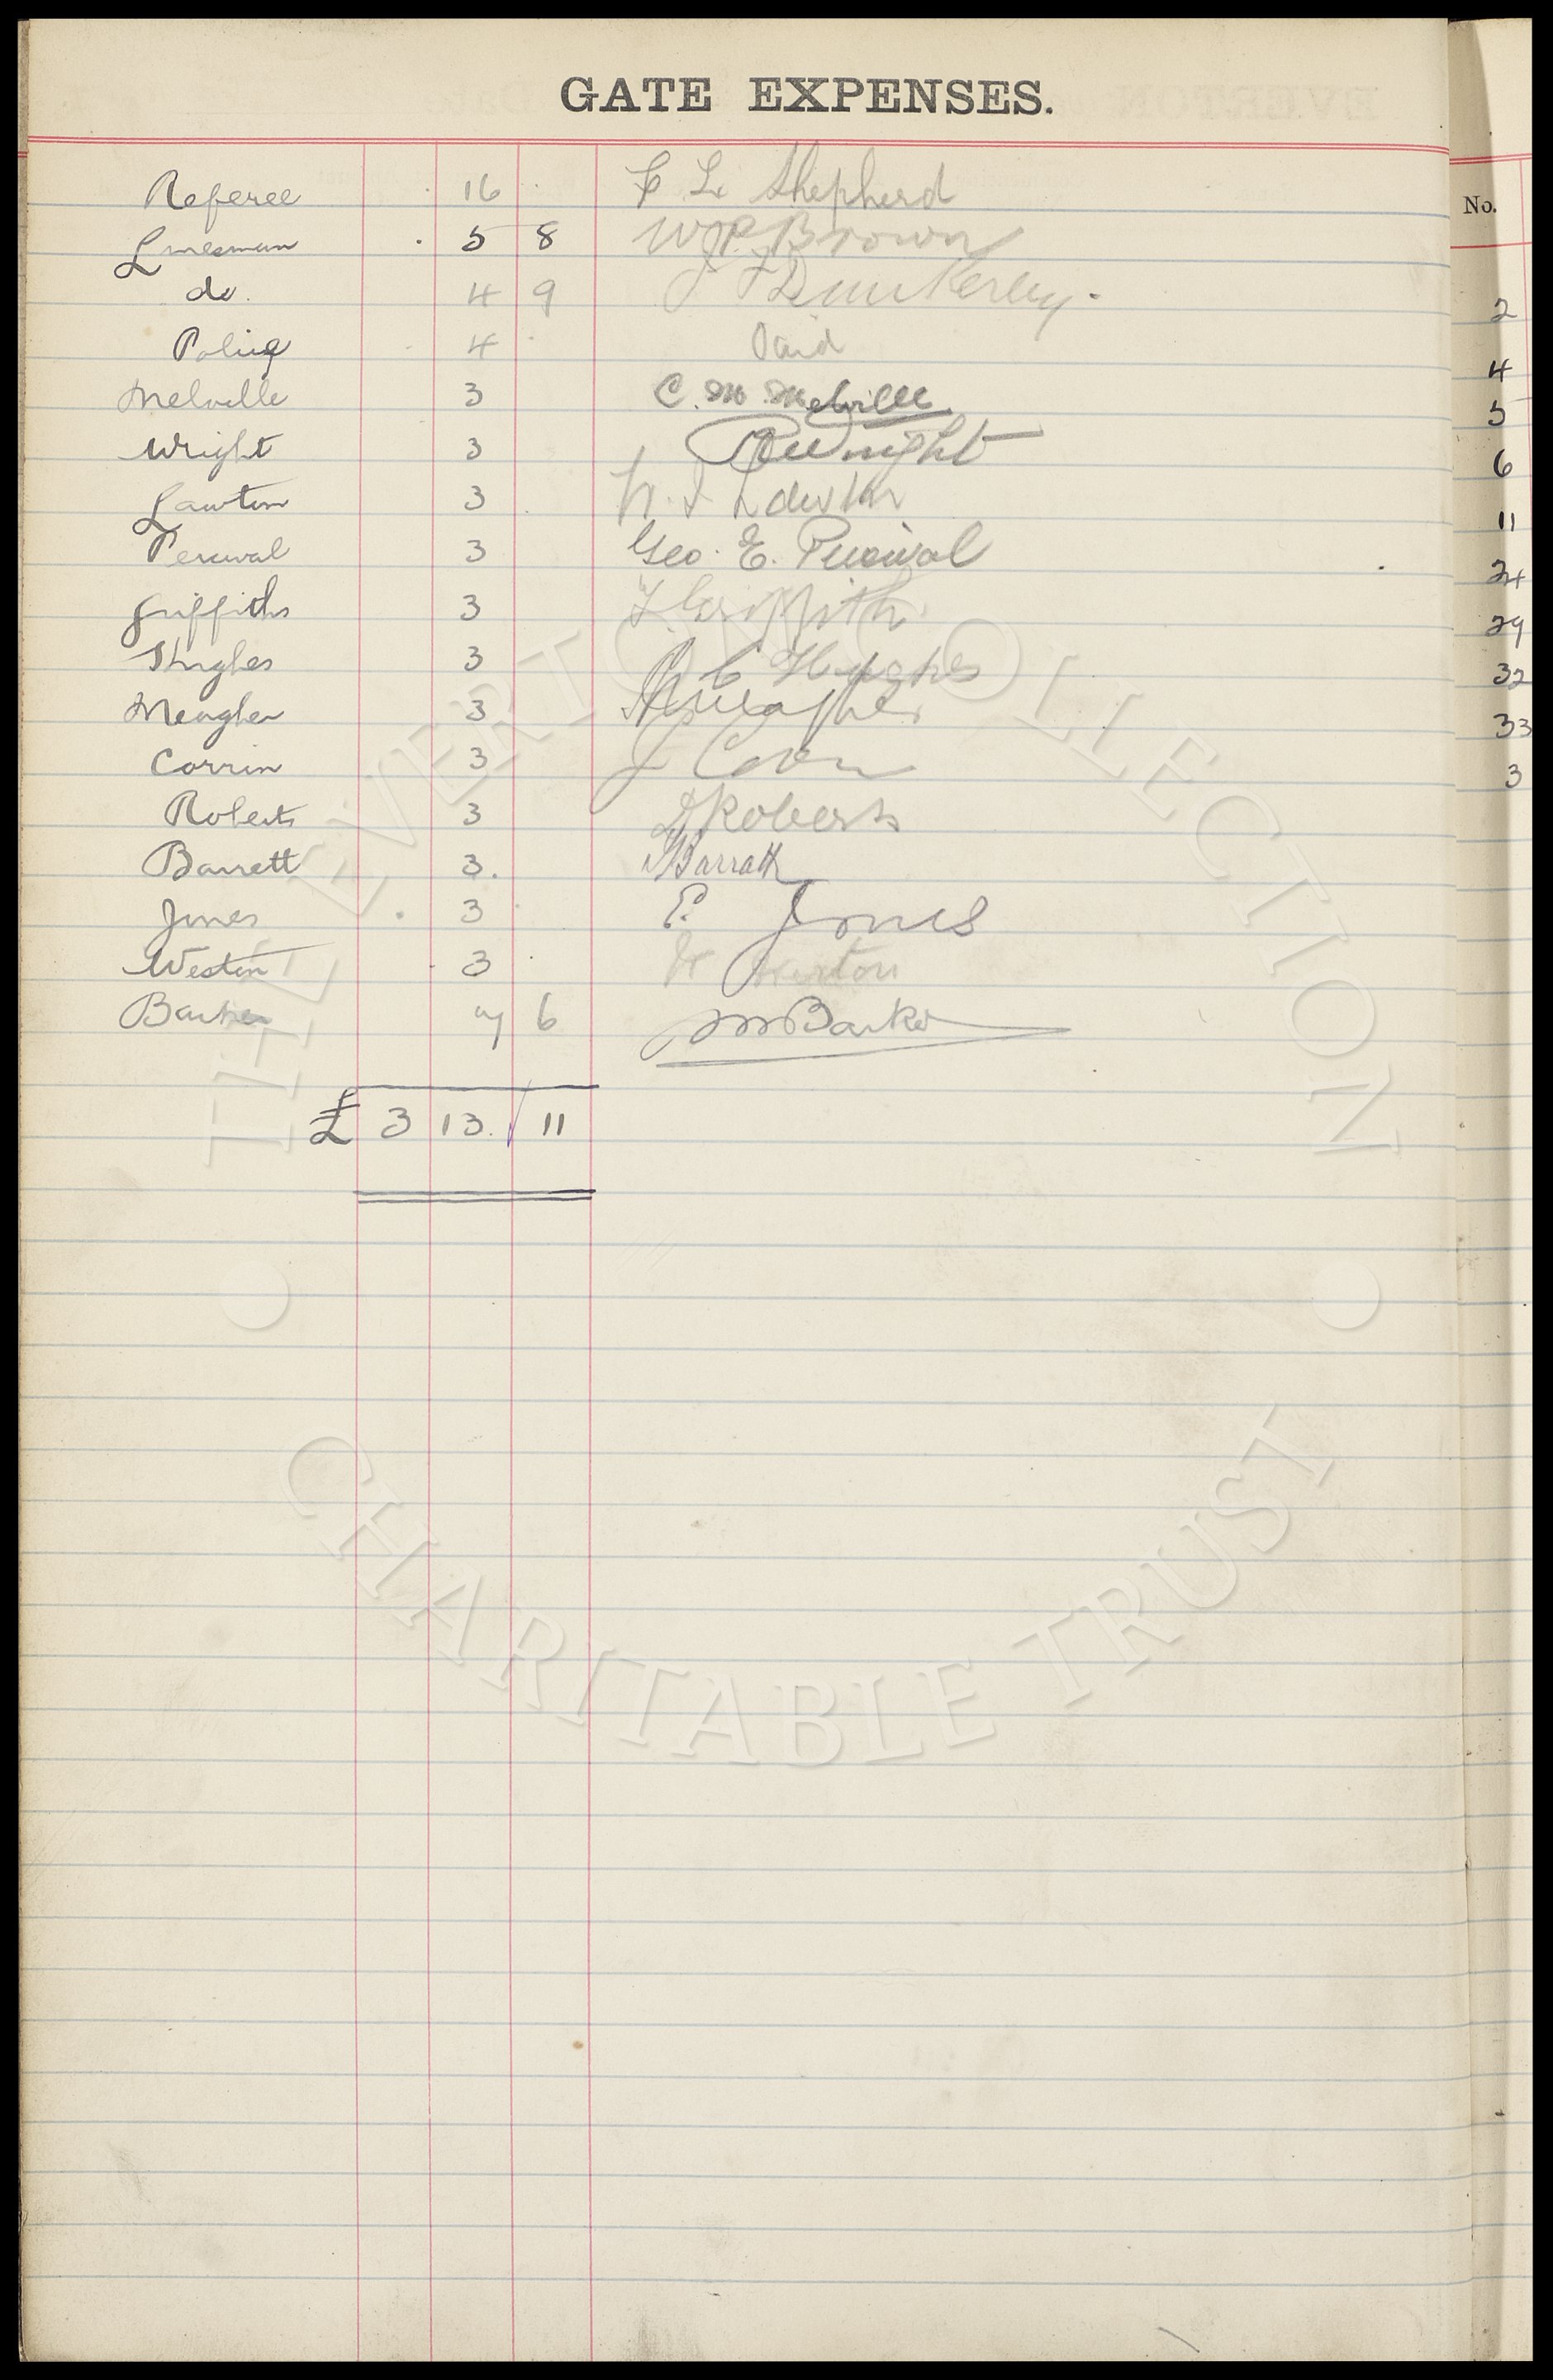 GATE EXPENSES.
Referee 16 F L Shepherd
Linesman 5 8 W P Brown
do. 4 9 J F Dunkerley.
Police 4 Paid
Melville 3 C. M. Melville
Wright 3 Wright
Lawton 3 Lawton
Percival 3 Geo. E. Percival
Griffiths 3 Griffiths
Hughes 3 Hughes
Meagher 3 Meagher
Corrin 3 J Corrin
Roberts 3 Roberts
Barrett 3. Barratt
Jones 3 E. Jones
Weston 3 Weston
Barker 6 Barker
£ 3 13. 11
No.
2
4
5
6
11
24
29
32
33
3
THE EVERTON COLLECTION
CHARITABLE TRUST